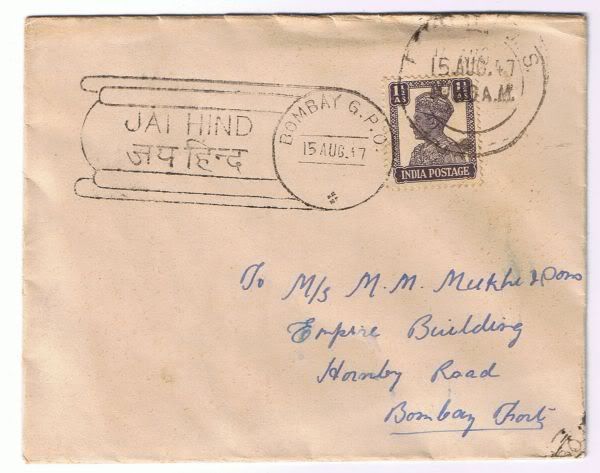 JAI HIND
जय हिन्द
BOMBAY G.P.O.
15 AUG. 47
15 AUG. 47
A.M.
1½ 1½
AS AS
INDIA POSTAGE
To M/s M. M. & Sons
Empire Building
Hornby Road
Bombay Fort